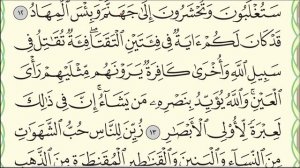 سَتُغْلَبُونَ وَتُحْشَرُونَ إِلَىٰ جَهَنَّمَ وَبِئْسَ ٱلْمِهَادُ ١٢
قَدْ كَانَ لَكُمْ ءَايَةٌ فِى فِئَتَيْنِ ٱلْتَقَتَا فِئَةٌ تُقَـٰتِلُ فِى
سَبِيلِ ٱللَّهِ وَأُخْرَىٰ كَافِرَةٌ يَرَوْنَهُم مِّثْلَيْهِمْ رَأْىَ
ٱلْعَيْنِ وَٱللَّهُ يُؤَيِّدُ بِنَصْرِهِۦ مَن يَشَآءُ إِنَّ فِى ذَٰلِكَ
لَعِبْرَةً لِّأُو۟لِى ٱلْأَبْصَـٰرِ ١٣ زُيِّنَ لِلنَّاسِ حُبُّ ٱلشَّهَوَٰتِ
مِنَ ٱلنِّسَآءِ وَٱلْبَنِينَ وَٱلْقَنَـٰطِيرِ ٱلْمُقَنطَرَةِ مِنَ ٱلذَّهَبِ